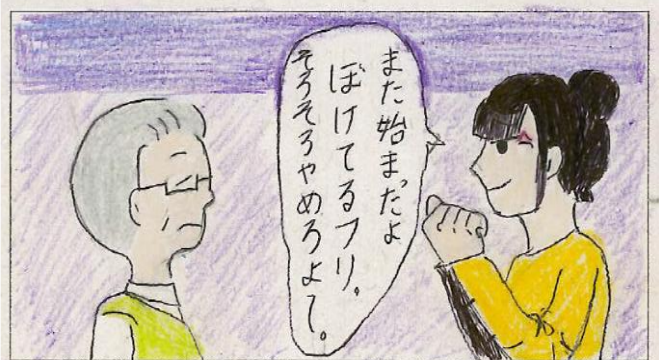 また始まったよ
ぼけてるフリ。
そろそろやめろよ〜。